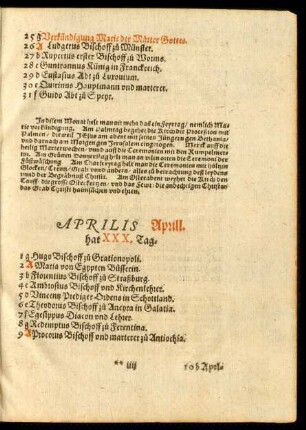 25 g Verkündigung Marie der Mutter Gottes.
26 A Ludgerus Bischoff zu Münster.
27 b Rupertus erster Bischoff zu Worms.
28 c Guntrannus Künig in Franckreich.
29 d Eustasius Abt zu Luxouium.
30 e Quirinus Hauptmann und marterer.
31 f Guido Abt zu Speyr.
In disem Monat helt man nit mehr dañ ein Feyrtag / nemlich Marie
verkündigung. Am Palmtag begehet die Kirch die Procession mit
Palmen / darauf JEsus am abent mit seinen Jüngern gen Bethanien
und darnach am Morgen gen Jerusalem eingezogen. Merck auff die
heilig Marterwochen / und auff die Ceremonien mit den Rumpelmet-
ten. Am Grünen Donnerstag helt man an vilen orten die Ceremoni der
Fůßwäschung. Am Charfreytag halt man die Ceremonien mit hültzin
Glocken / Creutz / Grab / und anders: alles zu betrachtung deß leydens
und der Begräbnuß Christi. Am Osterabent weyhet die Kirch den
Tauff / die grosse Osterkertzen / und das Fewr: die andechtigen Christen
das Grab Christi haimsůchen und ehren.
APRILIS Aprill.
hat XXX. Tag.
1 g Hugo Bischoff zu Grationopoli.
2 A Maria von Egypten Büsserin.
3 b Florentius Bischoff zu Straßburg.
4 c Ambrosius Bischoff und Kirchenlehrer.
5 d Vincentz Prediger Ordens in Schottland.
6 e Theodorus Bischoff zu Ancyra in Galatia.
7 f Egesippus Diacon und Lehrer.
8 g Redemptus Bischoff zu Ferentina.
9 A Procorus Bischoff und marterer zu Antiochia.
** iiij
10 b Apol-